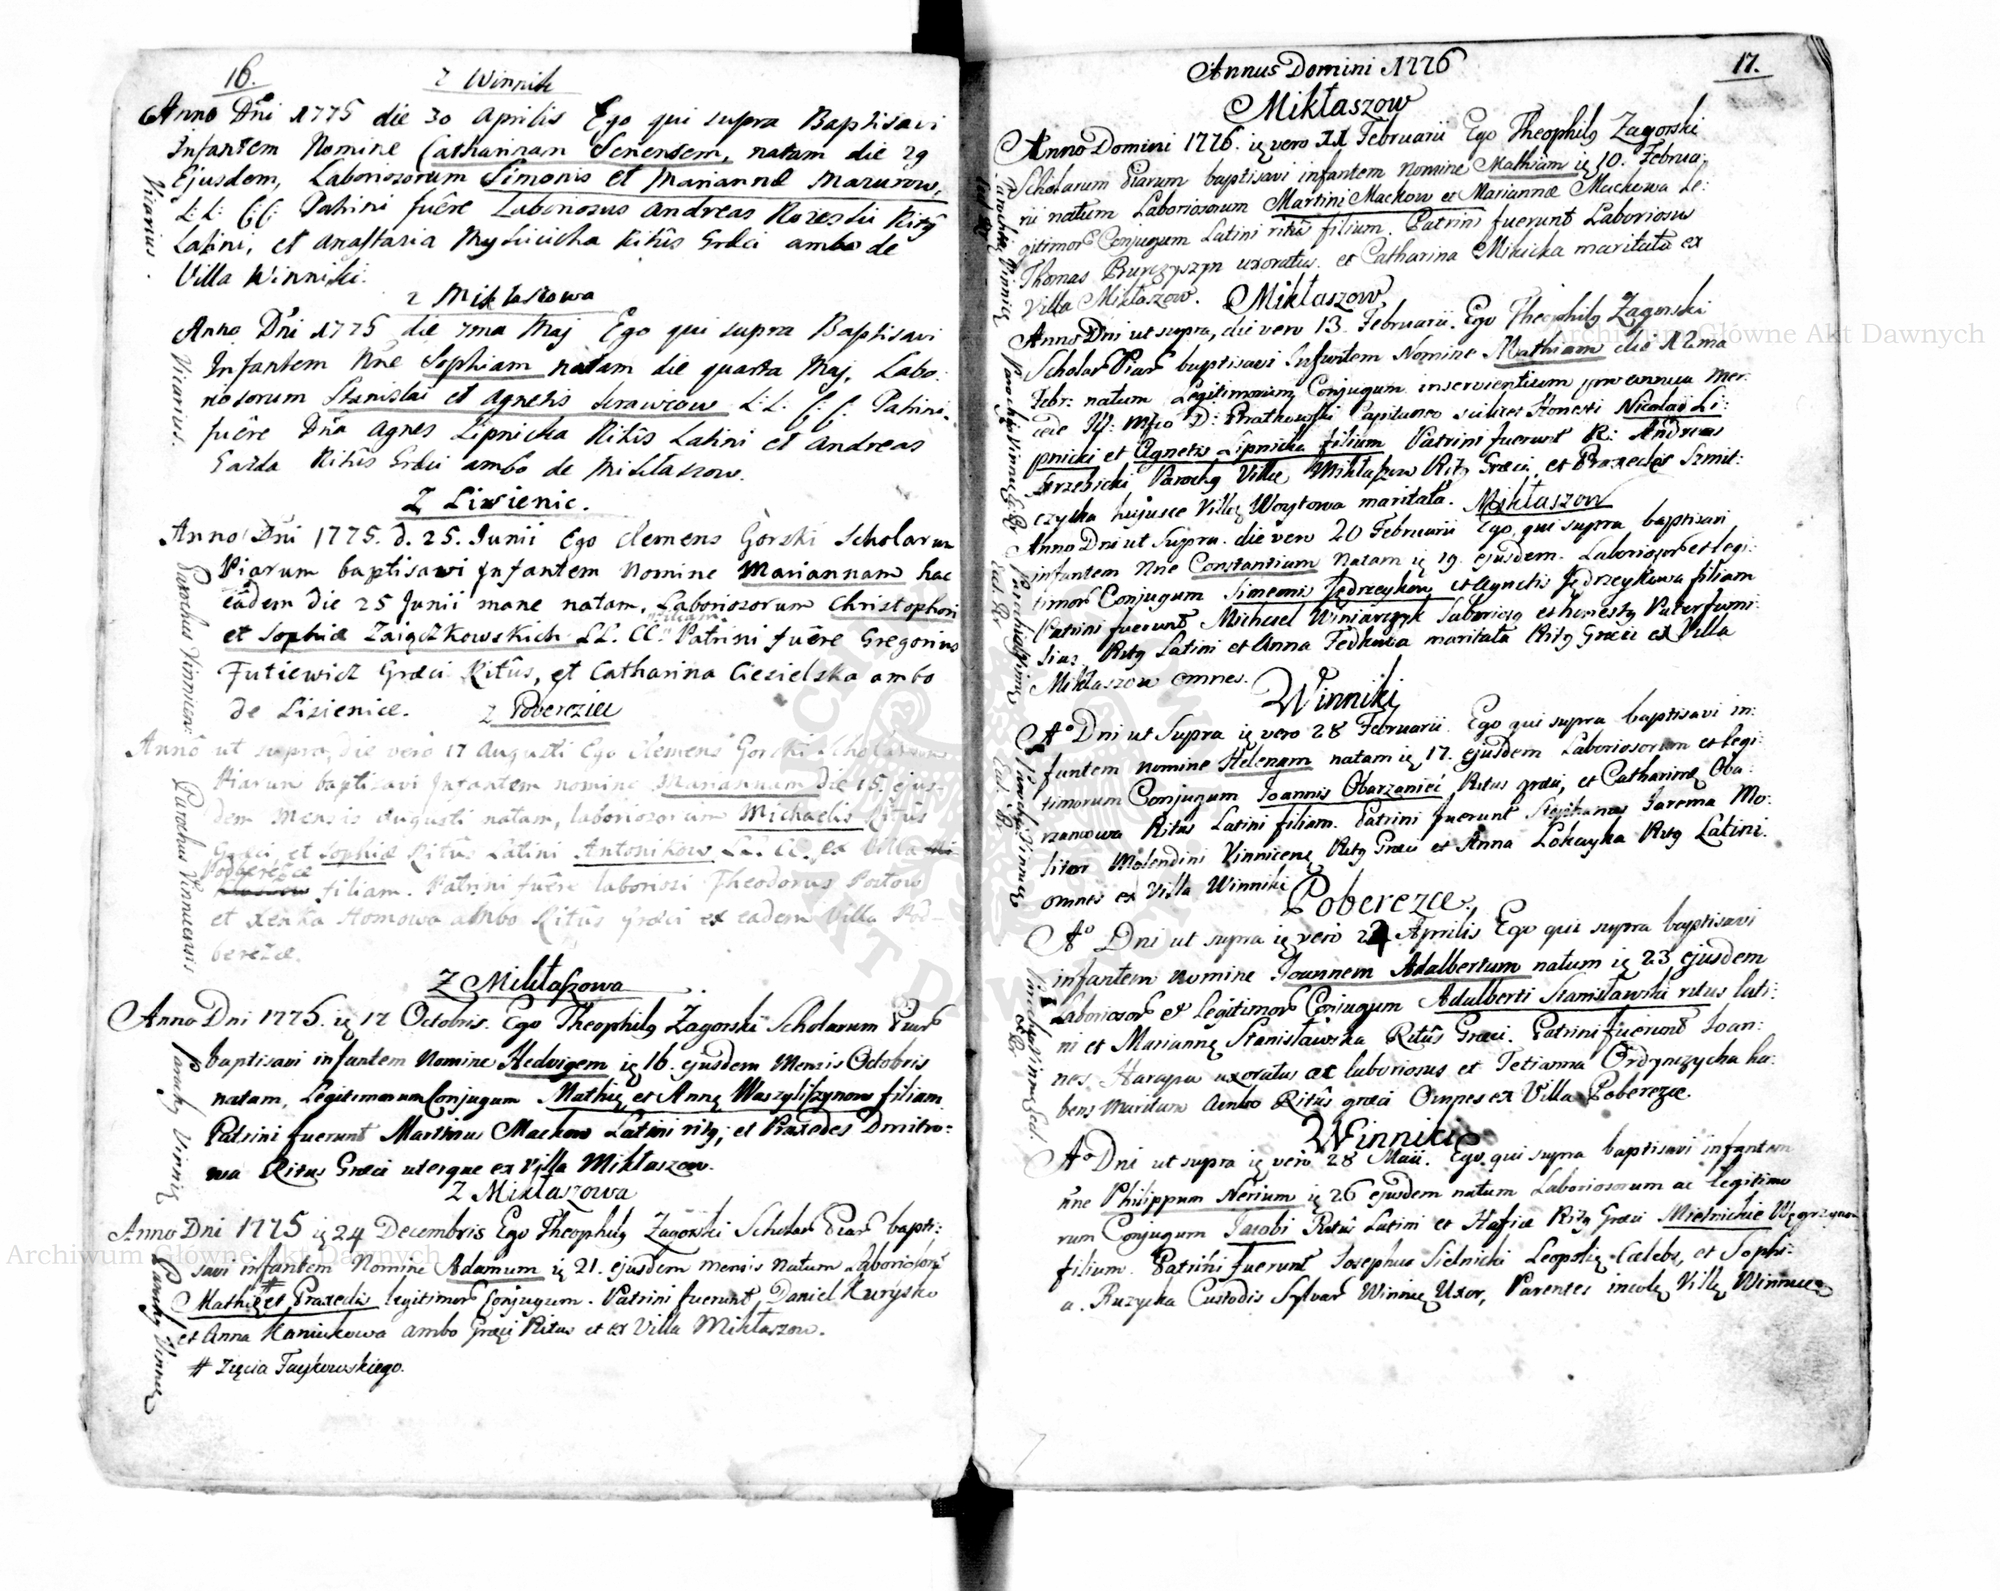 16.
z Winnik
Anno Dni 1775 die 30 Aprilis Ego qui supra Baptisavi
Infantem Nomine Catharinam Senensem, natam die 29
Ejusdem, Laboriosorum Simonis et Mariannæ Mazurow,
L: L: C: C: Patrini fuêre Laboriosus Andreas
Latini, et Anastasia Ritûs Græci ambo de
Villa Winniki.
Vicarius.
z Miklaszowa
Anno Dni 1775 die 7ma Maj Ego qui supra Baptisavi
Infantem Nne Sophiam natam die quarta Maj, Labo:
riosorum Stanislai et Agnetis Krawcow L: L: C: C: Patrini
fuêre Dna Agnes Lipnicka Ritûs Latini et Andreas
Gazda Ritûs Græci ambo de Miklaszow.
Vicarius.
Z Lisienic.
Anno Dni 1775. d. 25. Junii Ego Clemens Gorski Scholarum
Piarum baptisavi Infantem Nomine Mariannam hac
eâdem die 25 Junii mane natam, Laboriosorum Christophori
et Sophiæ Zaiączkowskich LL. CC. filiam. Patrini fuêre Gregorius
Futiewicz Græci Ritûs, et Catharina Ciesielska ambo
de Lisienice.
Parochus Vinnicen
z Pobereziec
Anno ut supra, die verò 17 Augusti Ego Clemens Gorski Scholarum
Piarum baptisavi Infantem nomine Mariannam die 15. ejus-
dem Mensis Augusti natam, laboriosorum Michaelis Ritûs
Græci et Sophiæ Ritûs Latini Antonikow LL. CC. ex Villa
Podberezce filiam. Patrini fuêre laboriosi Theodorus Portow
et Xenka Homowa ambo Ritûs Græci ex eadem Villa Pod-
berezce.
Parochus Vinnicensis
Z Miklaszowa
Anno Dni 1775. ię 17 Octobris. Ego Theophilg Zagorski Scholarum Piar
baptisavi infantem Nomine Hedvigem ię 16. ejusdem Mensis Octobris
natam, Legitimorum Conjugum Mathię et Annę Waszyliszynow filiam
Patrini fuerunt Martinus Mackow Latini ritg, et Praxedes Dmitro-
wa Ritus Græci uterque ex Villa Miklaszow.
Parochg Vinnic
Z Miklaszowa
Anno Dni 1775 ię 24 Decembris Ego Theophilg Zagorski Scholar Piar bapti:
savi infantem Nomine Adamum ię 21. ejusdem mensis natum Laboriosor
Mathię # et Praxedis legitimor Conjugum. Patrini fuerunt Daniel Kurysko
et Anna Kaniukowa ambo Græci Ritus et ex Villa Miklaszow.
# Zięcia Faykowskiego.
Parochg Vinnic
17.
Annus Domini 1776
Miklaszow
Anno Domini 1776. ię vero 11 Februarii Ego Theophilg Zagorski
Scholarum Piarum baptisavi infantem Nomine Mathiam ię 10. Februa:
rii natum Laboriosorum Martini Mackow et Mariannæ Mackowa Le:
gitimor Conjugum Latini ritûs filium. Patrini fuerunt Laboriosus
Thomas Burczyszyn uxoratus. et Catharina Mikicka maritata ex
Villa Miklaszow.
Miklaszow
Anno Dni ut supra, die vero 13. Februarii. Ego Theophilg Zagorski
Scholar Piar baptisavi Infantem Nomine Mathiam die 12ma
Febr: natum Legitimorum Conjugum inservientium pro annua mer:
cede Honesti Nicolai Li:
pnicki et Agnetis Lipnicka filium Patrini fuerunt R: Andreas
Parochg Villæ Miklaszow Ritg Græci, et Praxedis Szmil:
czycha hujusce Villę Woytowa maritata.
Miklaszow
Anno Dni ut Supra. die vero 20 Februarii Ego, qui supra baptisavi
infantem Nne Constantium natam ię 19. ejusdem. Laboriosor et legi:
timor Conjugum Simeonis Jędrzeykow et Agnetis Jędrzeykowa filiam
Patrini fuerunt Michael Winiarczyk Laboriosg et honestg Paterfami:
lias, Ritg Latini et Anna Fedkowa maritata Ritg Græci ex Villa
Miklaszow omnes.
Winniki
Ao Dni ut Supra ię vero 28 Februarii. Ego qui supra baptisavi in:
fantem nomine Helenam natam ię 17. ejusdem Laboriosorum et legi:
timorum Conjugum Joannis Obarzaniec Ritus græci, et Catharinę Oba:
rzanowa Ritus Latini filiam. Patrini fuerunt Stephanus Jarema Mo:
litor Molendini Vinnicenę Ritg Græci et Anna Lokayka Ritg Latini.
omnes ex Villa Winniki
Poberezce,
Ao Dni ut supra ię verò 24 Aprilis Ego qui supra baptisavi
infantem nomine Joannem Adalbertum natum ię 23 ejusdem
Laboriosor et legitimor Conjugum Adalberti Stanisławski ritus lati:
ni et Mariannę Stanisławska Ritûs Græci. Patrini fuerunt Joan:
nes Harapa uxoratus ac laboriosus et Tetianna Ordynczycha ha:
bens Maritum Ambo Ritûs græci Omnes ex Villa Poberezce.
Winniki
Ao Dni ut supra ię verò 28 Maii. Ego qui supra baptisavi infantem
nne Philippum Nerium ię 26 ejusdem natum Laboriosorum ac legitimo
rum Conjugum Jacobi Ritus Latini et Hafiæ Ritg Græci Mielnickie Węgrzynow
filium. Patrini fuerunt Josephus Sielnicki Leopolię Cælebs, et Sophi-
a. Ruzycka Custodis Sylvar Winnic Uxor, Parentes incolę Villę Winnice
Archiwum Główne Akt Dawnych
Archiwum Główne Akt Dawnych